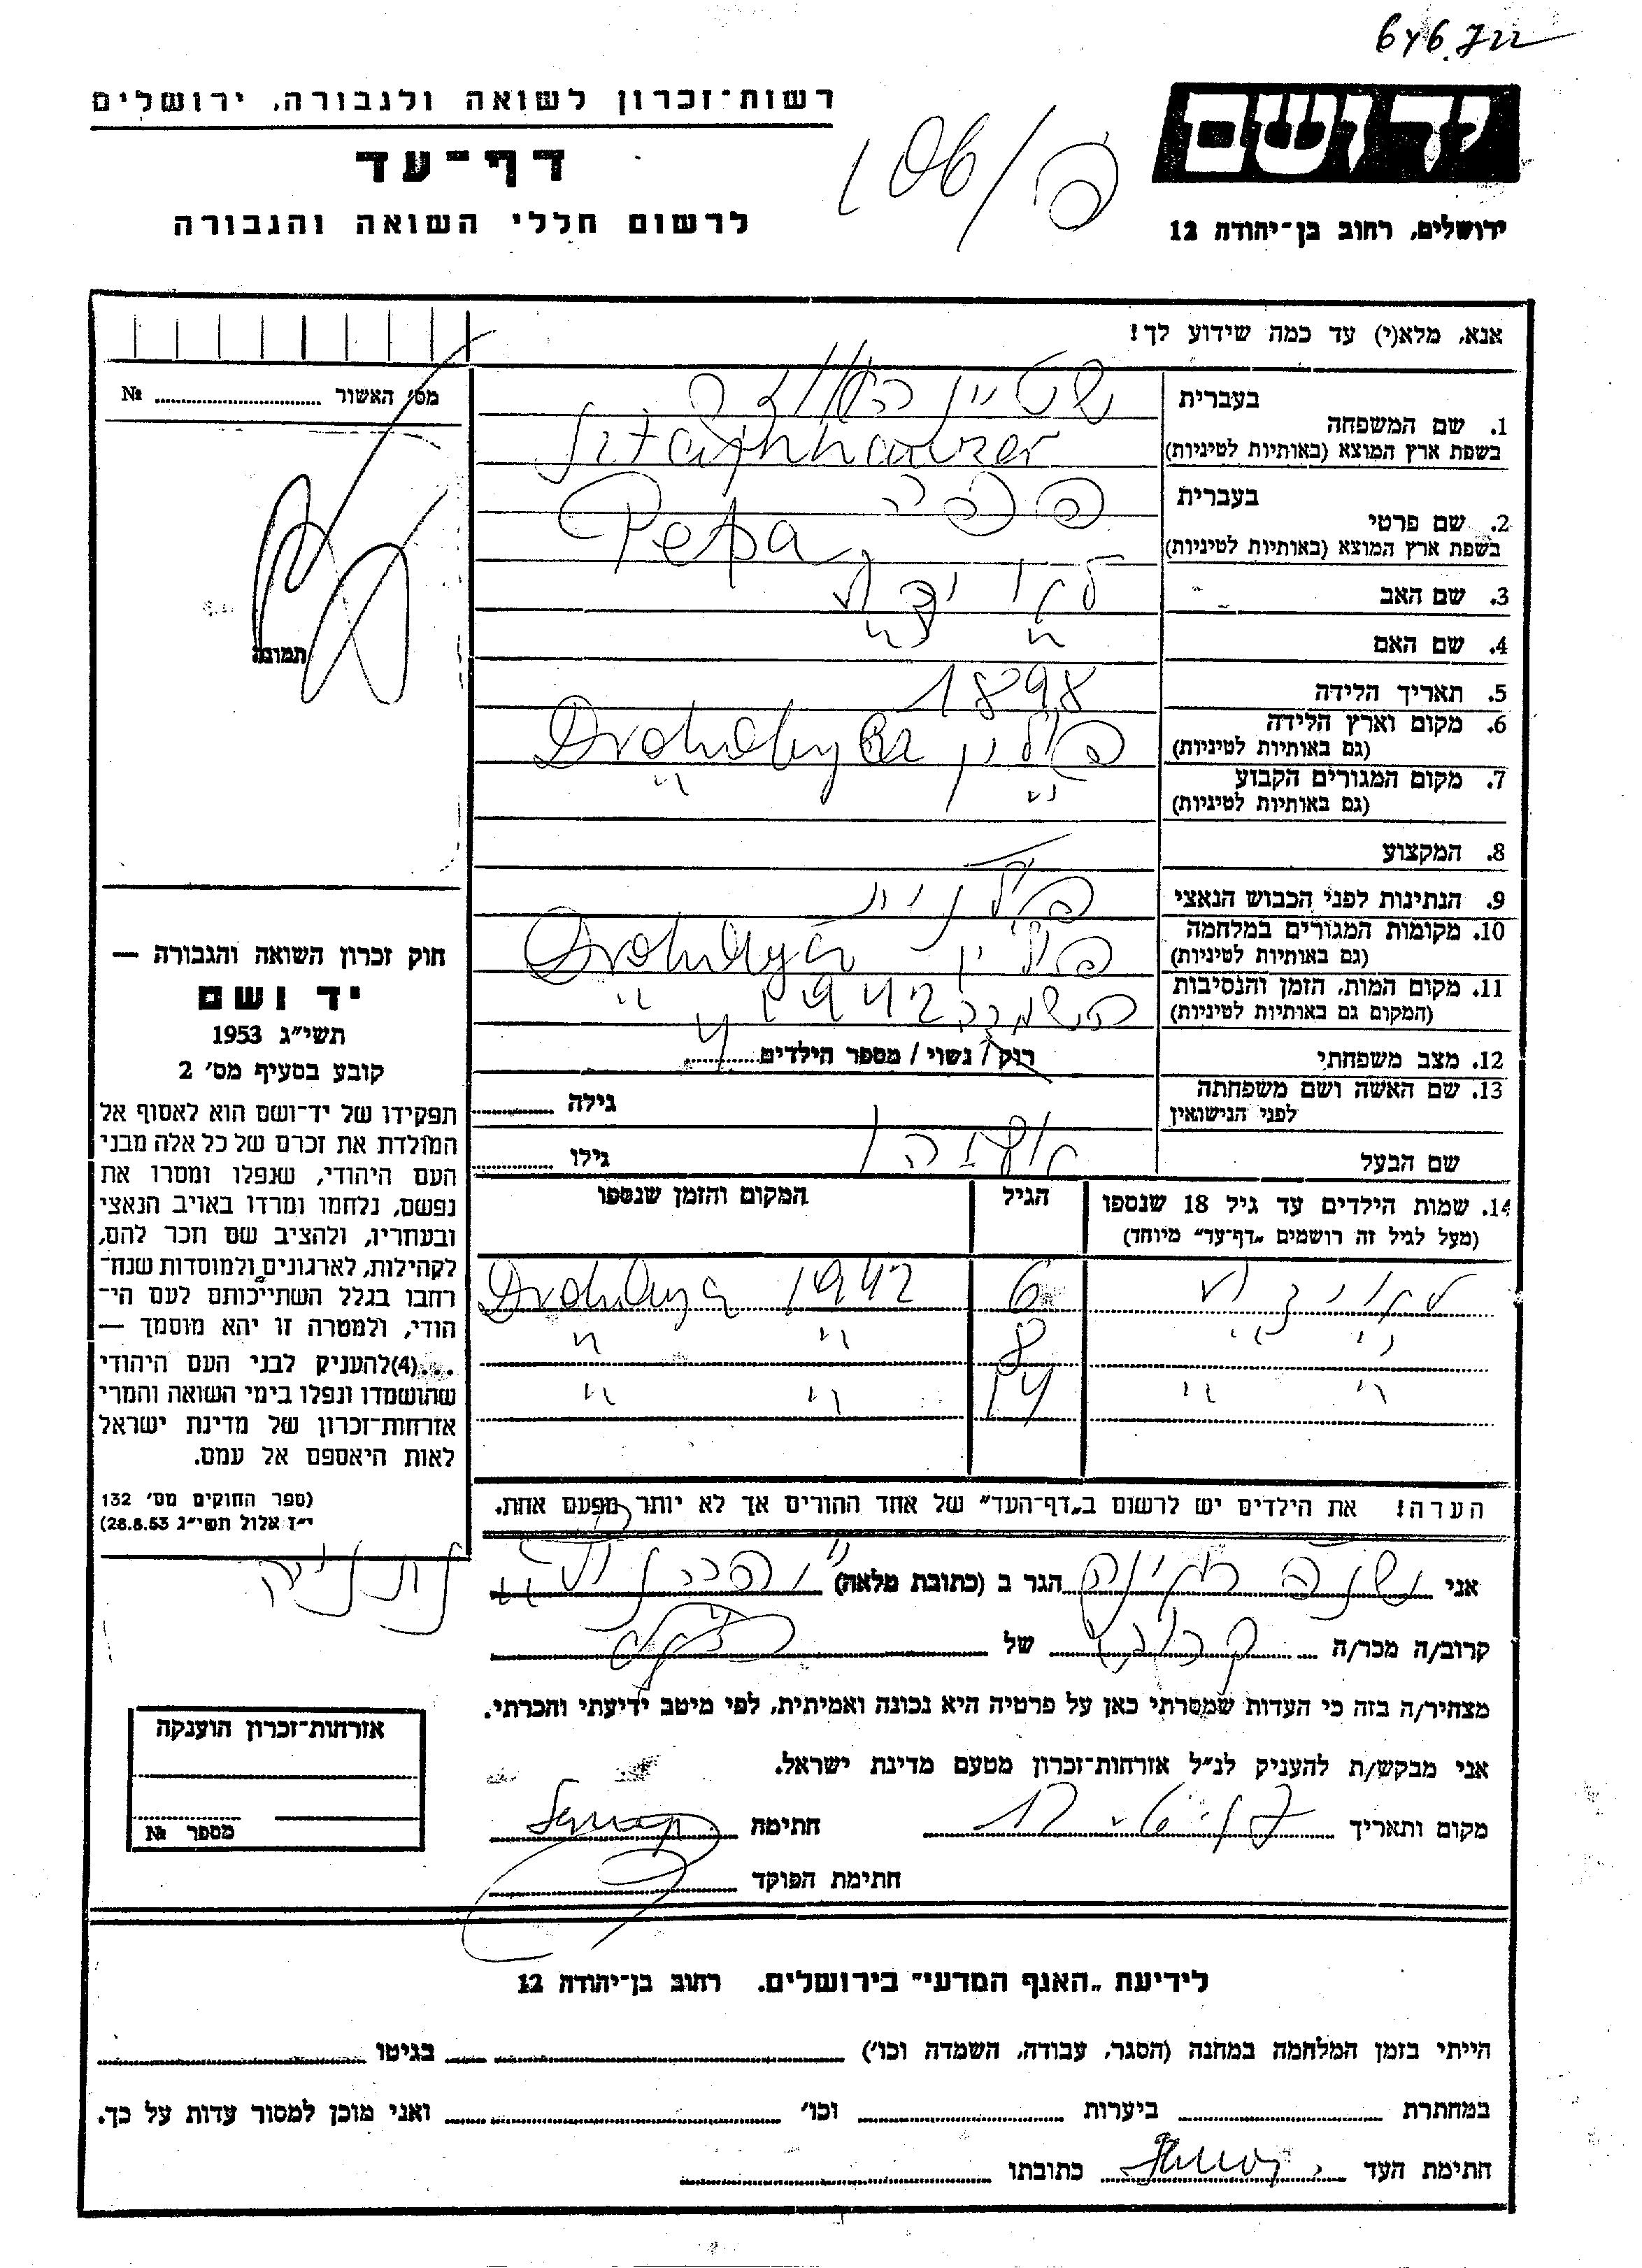 רשות-זכרון לשואה ולגבורה, ירושלים
דף-עד
לרשום חללי השואה והגבורה
יד ושם
ירושלים, רחוב בן-יהודה 12
אנא, מלא(י) עד כמה שידוע לך!
מס׳ האשור ........ №
תמונה
1. שם המשפחה
בעברית
בשפת ארץ המוצא (באותיות לטיניות)
2. שם פרטי
בעברית פפה
בשפת ארץ המוצא (באותיות לטיניות) Pepa
3. שם האב לא ידוע
4. שם האם " "
5. תאריך הלידה 1898
6. מקום וארץ הלידה פולין
(גם באותיות לטיניות)
7. מקום המגורים הקבוע " "
(גם באותיות לטיניות)
8. המקצוע
9. הנתינות לפני הכבוש הנאצי פולנית
10. מקומות המגורים במלחמה פולין
(גם באותיות לטיניות)
11. מקום המות, הזמן והנסיבות 1942 "
(המקום גם באותיות לטיניות)
12. מצב משפחתי רוק / נשוי / מספר הילדים 4
13. שם האשה ושם משפחתה לפני הנישואין גילה ........
שם הבעל גילו ........
14. שמות הילדים עד גיל 18 שנספו הגיל המקום והזמן שנספו
(מעל לגיל זה רושמים „דף-עד״ מיוחד)
לא ידוע 6 1942
" " 8 " "
" " 14 " "
הערה! את הילדים יש לרשום ב„דף-העד״ של אחד ההורים אך לא יותר מפעם אחת.
חוק זכרון השואה והגבורה —
יד ושם
תשי״ג 1953
קובע בסעיף מס׳ 2
תפקידו של יד-ושם הוא לאסוף אל
המולדת את זכרם של כל אלה מבני
העם היהודי, שנפלו ומסרו את
נפשם, נלחמו ומרדו באויב הנאצי
ובעוזריו, ולהציב שם וזכר להם,
לקהילות, לארגונים ולמוסדות שנח-
רבו בגלל השתייכותם לעם הי-
הודי, ולמטרה זו יהא מוסמך —
...(4) להעניק לבני העם היהודי
שהושמדו ונפלו בימי השואה והמרי
אזרחות-זכרון של מדינת ישראל
לאות היאספם אל עמם.
(ספר החוקים מס׳ 132
י״ז אלול תשי״ג 28.8.53)
אני הגר ב (כתובת מלאה) נתניה
קרוב/ה מכר/ה של
מצהיר/ה בזה כי העדות שמסרתי כאן על פרטיה היא נכונה ואמיתית, לפי מיטב ידיעתי והכרתי.
אני מבקש/ת להעניק לנ״ל אזרחות-זכרון מטעם מדינת ישראל.
מקום ותאריך חתימה
חתימת הפוקד
אזרחות-זכרון הוענקה
מספר №
לידיעת „האגף המדעי״ בירושלים, רחוב בן-יהודה 12
הייתי בזמן המלחמה במחנה (הסגר, עבודה, השמדה וכו׳) ........ בגיטו ........
במחתרת ........ ביערות ........ וכו׳ ........ ואני מוכן למסור עדות על כך.
חתימת העד כתובתו ........